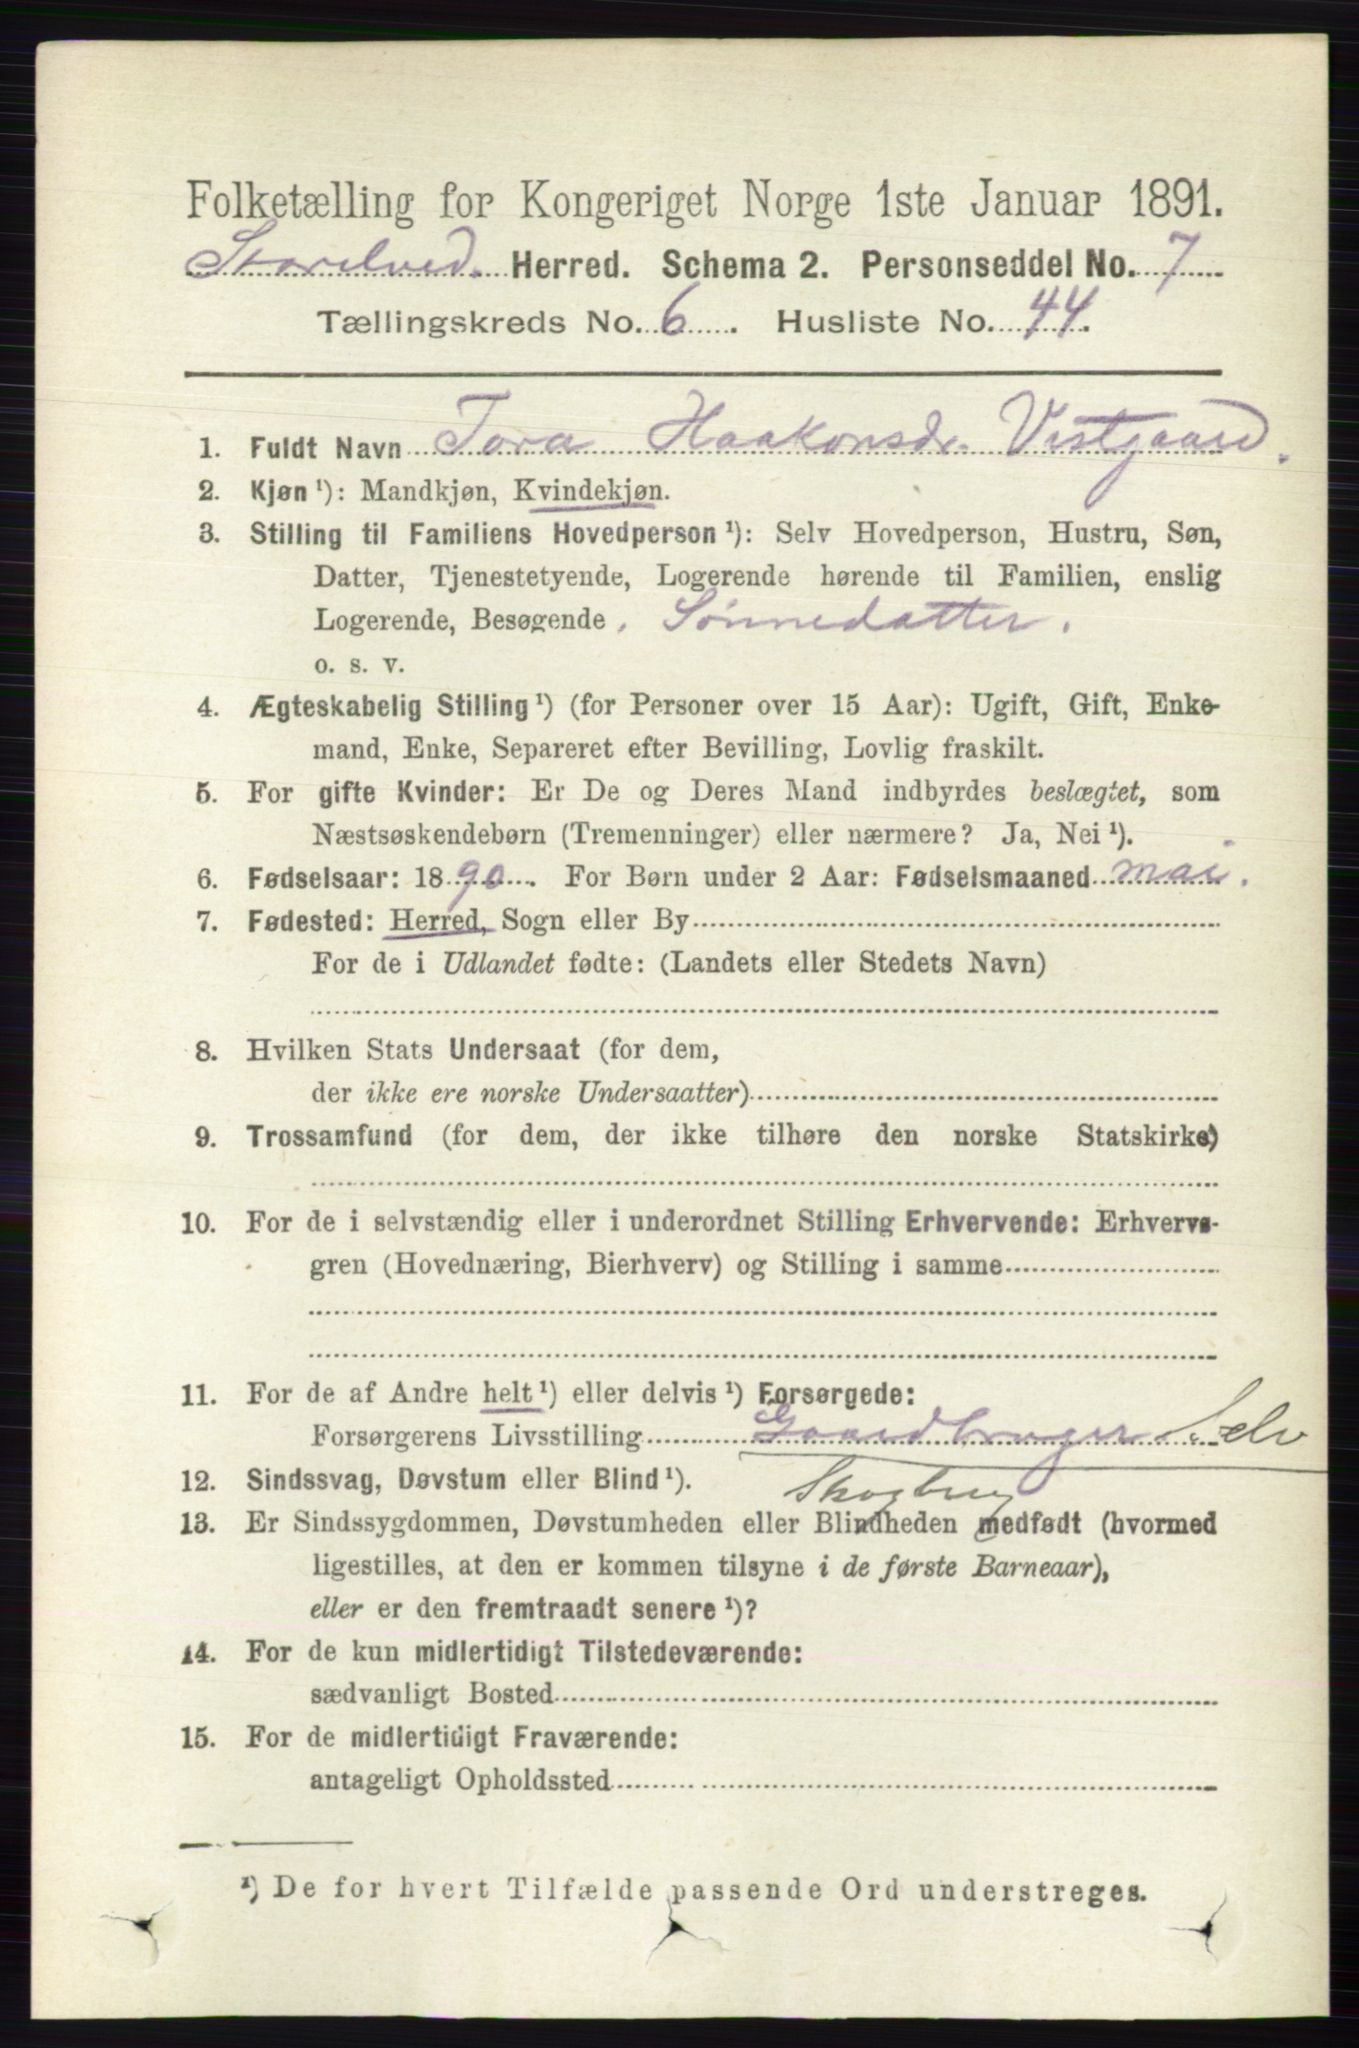 Folketælling for Kongeriget Norge 1ste Januar 1891.
Storelved. Herred. Schema 2. Personseddel No. 7
Tællingskreds No. 6. Husliste No. 44.
1. Fuldt Navn Tora Haakonsdr. Vestgaard.
2. Kjøn ¹): Mandkjøn, Kvindekjøn.
3. Stilling til Familiens Hovedperson ¹): Selv Hovedperson, Hustru, Søn,
Datter, Tjenestetyende, Logerende hørende til Familien, enslig
Logerende, Besøgende. Sønnedatter.
o. s. v.
4. Ægteskabelig Stilling ¹) (for Personer over 15 Aar): Ugift, Gift, Enke-
mand, Enke, Separeret efter Bevilling, Lovlig fraskilt.
5. For gifte Kvinder: Er De og Deres Mand indbyrdes beslægtet, som
Næstsøskendebørn (Tremenninger) eller nærmere? Ja, Nei ¹).
6. Fødselsaar: 1890. For Børn under 2 Aar: Fødselsmaaned mai.
7. Fødested: Herred, Sogn eller By
For de i Udlandet fødte: (Landets eller Stedets Navn)
8. Hvilken Stats Undersaat (for dem,
der ikke ere norske Undersaatter)
9. Trossamfund (for dem, der ikke tilhøre den norske Statskirke)
10. For de i selvstændig eller i underordnet Stilling Erhvervende: Erhvervs-
gren (Hovednæring, Bierhverv) og Stilling i samme
11. For de af Andre helt ¹) eller delvis ¹) Forsørgede:
Forsørgerens Livsstilling Gaardbruger Selv
12. Sindssvag, Døvstum eller Blind ¹). Skogbrug
13. Er Sindssygdommen, Døvstumheden eller Blindheden medfødt (hvormed
ligestilles, at den er kommen tilsyne i de første Barneaar),
eller er den fremtraadt senere ¹)?
14. For de kun midlertidigt Tilstedeværende:
sædvanligt Bosted
15. For de midlertidigt Fraværende:
antageligt Opholdssted
¹) De for hvert Tilfælde passende Ord understreges.